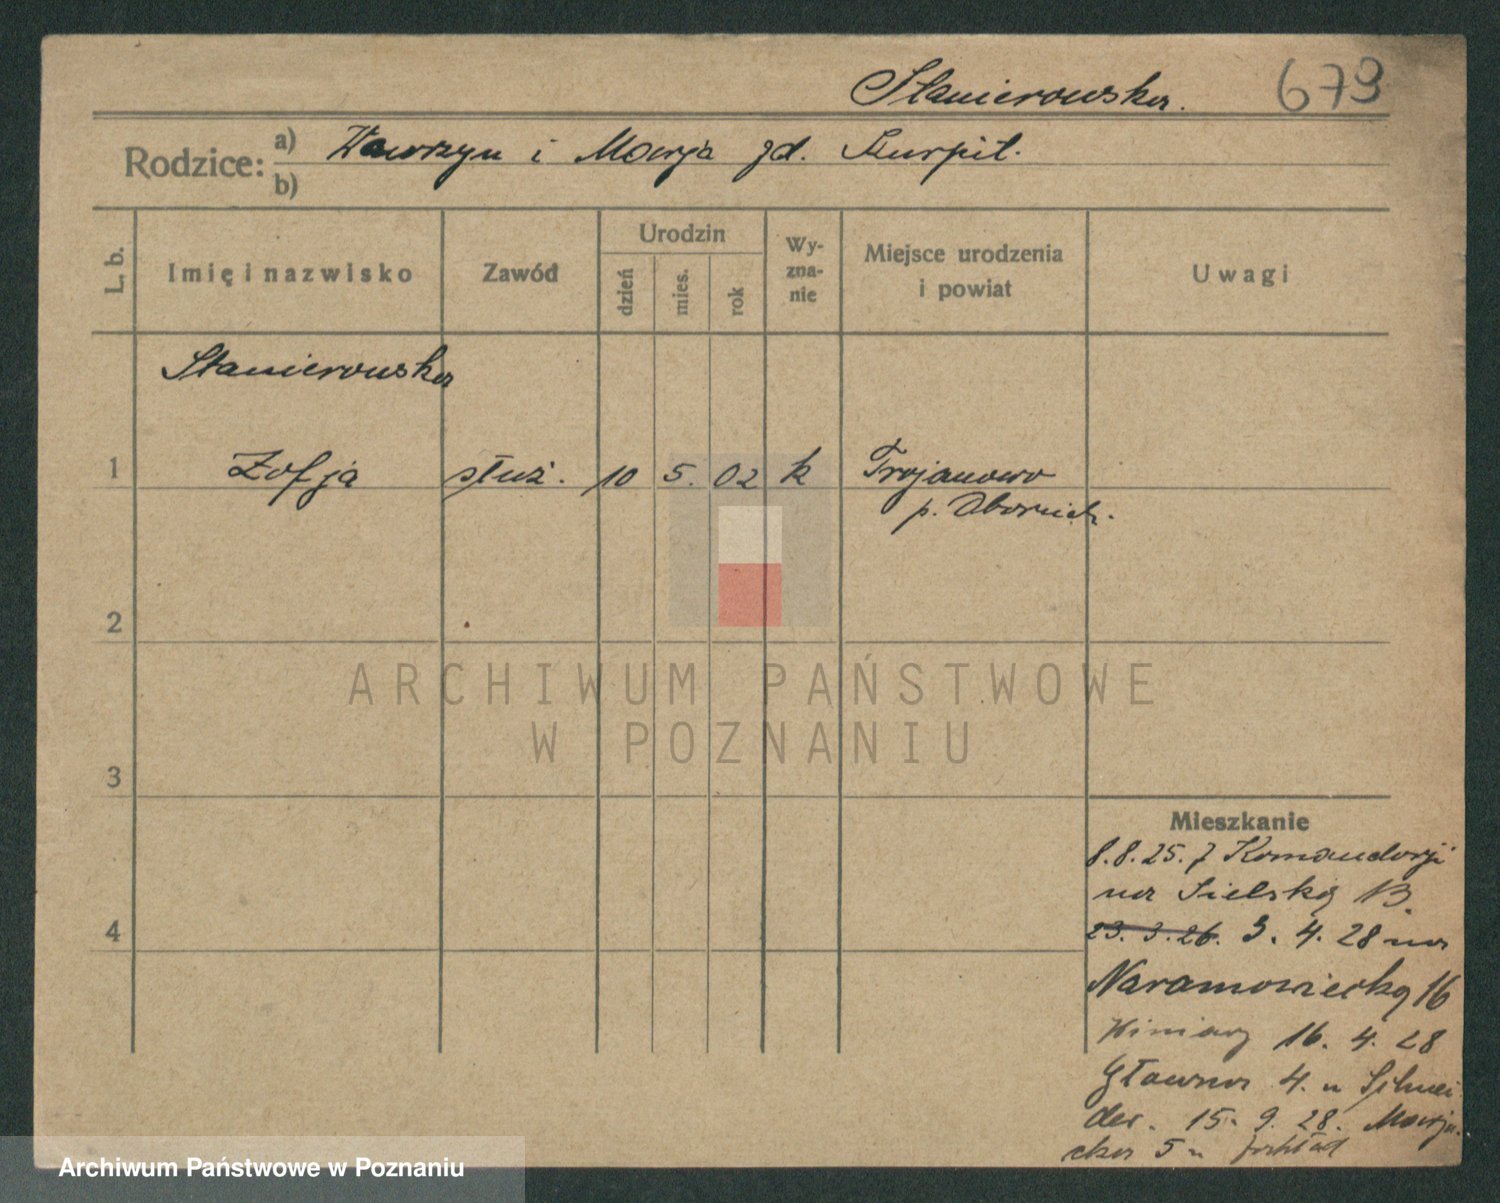 Stanierowska.
679
Rodzice:
a) Wawrzyn i Marja zd. Kurpit.
b)
L. b.
Imię i nazwisko
Zawód
Urodzin
dzień
mies.
rok
Wy-
zna-
nie
Miejsce urodzenia
i powiat
Uwagi
Stanierowska
1 Zofja służ. 10 5. 02 k Trojanowo
p. Obornick.
2
3
4
ARCHIWUM PAŃSTWOWE
W POZNANIU
Mieszkanie
8.8.25. z Komandorji
na Sielską 13.
23. 3. 26. 3. 4. 28 na
Naramowicką 16
Winiary 16. 4. 28
Główna 4. u Schnei
der. 15. 9. 28.
5 u
Archiwum Państwowe w Poznaniu